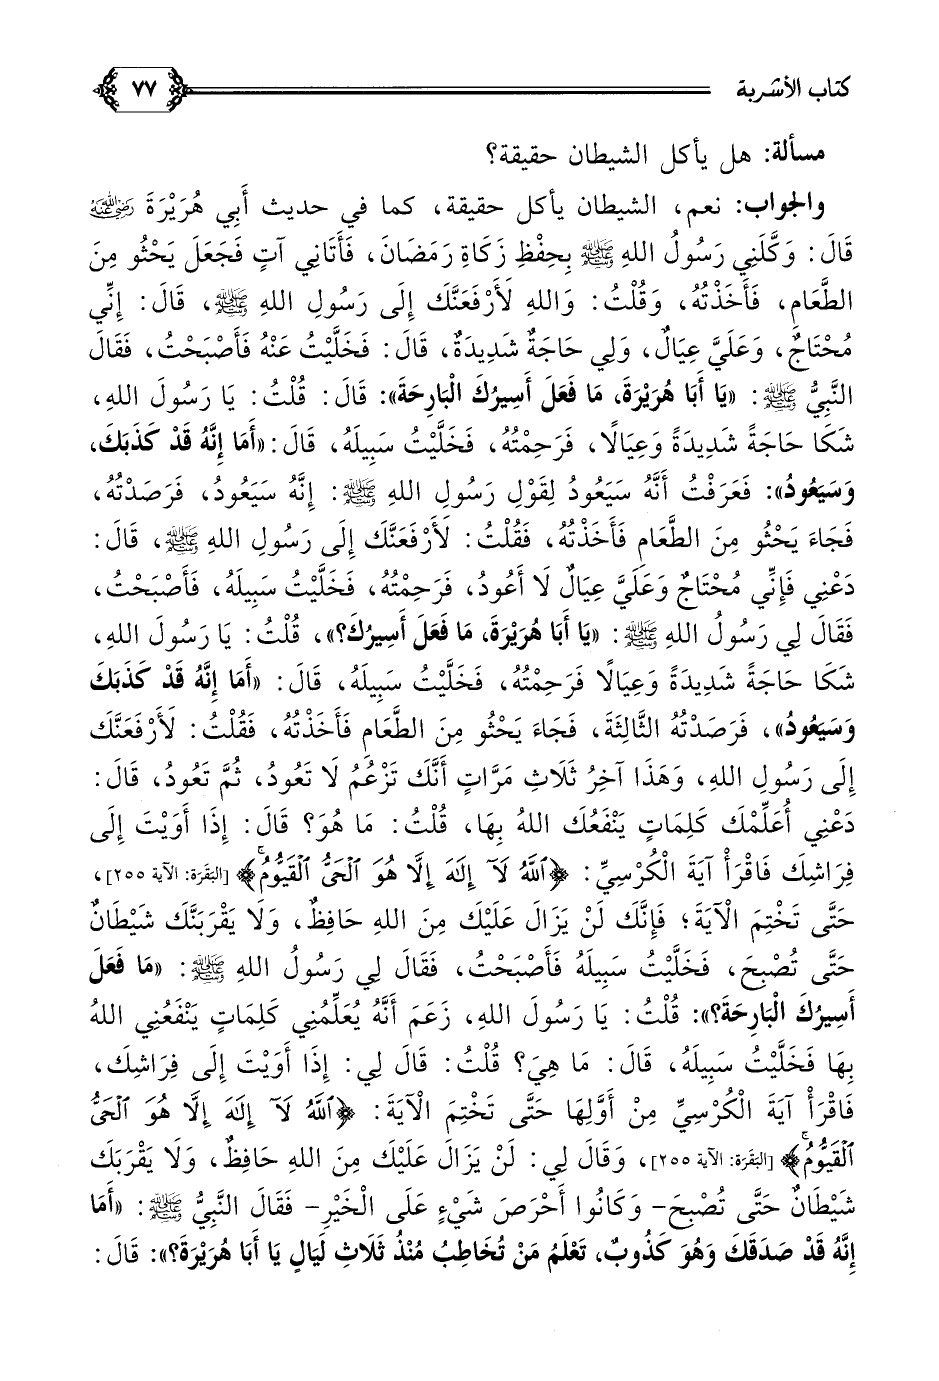 كتاب الأشربة ٧٧
مسألة: هل يأكل الشيطان حقيقة؟
والجواب: نعم، الشيطان يأكل حقيقة، كما في حديث أَبِي هُرَيْرَةَ رضي الله عنه
قَالَ: وَكَّلَنِي رَسُولُ اللهِ ﷺ بِحِفْظِ زَكَاةِ رَمَضَانَ، فَأَتَانِي آتٍ فَجَعَلَ يَحْثُو مِنَ
الطَّعَامِ، فَأَخَذْتُهُ، وَقُلْتُ: وَاللهِ لَأَرْفَعَنَّكَ إِلَى رَسُولِ اللهِ ﷺ، قَالَ: إِنِّي
مُحْتَاجٌ، وَعَلَيَّ عِيَالٌ، وَلِي حَاجَةٌ شَدِيدَةٌ، قَالَ: فَخَلَّيْتُ عَنْهُ فَأَصْبَحْتُ، فَقَالَ
النَّبِيُّ ﷺ: «يَا أَبَا هُرَيْرَةَ، مَا فَعَلَ أَسِيرُكَ الْبَارِحَةَ»: قَالَ: قُلْتُ: يَا رَسُولَ اللهِ،
شَكَا حَاجَةً شَدِيدَةً وَعِيَالًا، فَرَحِمْتُهُ، فَخَلَّيْتُ سَبِيلَهُ، قَالَ: «أَمَا إِنَّهُ قَدْ كَذَبَكَ،
وَسَيَعُودُ»: فَعَرَفْتُ أَنَّهُ سَيَعُودُ لِقَوْلِ رَسُولِ اللهِ ﷺ: إِنَّهُ سَيَعُودُ، فَرَصَدْتُهُ،
فَجَاءَ يَحْثُو مِنَ الطَّعَامِ فَأَخَذْتُهُ، فَقُلْتُ: لَأَرْفَعَنَّكَ إِلَى رَسُولِ اللهِ ﷺ، قَالَ:
دَعْنِي فَإِنِّي مُحْتَاجٌ وَعَلَيَّ عِيَالٌ لَا أَعُودُ، فَرَحِمْتُهُ، فَخَلَّيْتُ سَبِيلَهُ، فَأَصْبَحْتُ،
فَقَالَ لِي رَسُولُ اللهِ ﷺ: «يَا أَبَا هُرَيْرَةَ، مَا فَعَلَ أَسِيرُكَ؟»، قُلْتُ: يَا رَسُولَ اللهِ،
شَكَا حَاجَةً شَدِيدَةً وَعِيَالًا فَرَحِمْتُهُ، فَخَلَّيْتُ سَبِيلَهُ، قَالَ: «أَمَا إِنَّهُ قَدْ كَذَبَكَ
وَسَيَعُودُ»، فَرَصَدْتُهُ الثَّالِثَةَ، فَجَاءَ يَحْثُو مِنَ الطَّعَامِ فَأَخَذْتُهُ، فَقُلْتُ: لَأَرْفَعَنَّكَ
إِلَى رَسُولِ اللهِ، وَهَذَا آخِرُ ثَلَاثِ مَرَّاتٍ أَنَّكَ تَزْعُمُ لَا تَعُودُ، ثُمَّ تَعُودُ، قَالَ:
دَعْنِي أُعَلِّمْكَ كَلِمَاتٍ يَنْفَعُكَ اللهُ بِهَا، قُلْتُ: مَا هُوَ؟ قَالَ: إِذَا أَوَيْتَ إِلَى
فِرَاشِكَ فَاقْرَأْ آيَةَ الْكُرْسِيِّ: ﴿ٱللَّهُ لَآ إِلَٰهَ إِلَّا هُوَ ٱلْحَىُّ ٱلْقَيُّومُۚ﴾ [البَقَرَة: الآية ٢٥٥]،
حَتَّى تَخْتِمَ الْآيَةَ؛ فَإِنَّكَ لَنْ يَزَالَ عَلَيْكَ مِنَ اللهِ حَافِظٌ، وَلَا يَقْرَبَنَّكَ شَيْطَانٌ
حَتَّى تُصْبِحَ، فَخَلَّيْتُ سَبِيلَهُ فَأَصْبَحْتُ، فَقَالَ لِي رَسُولُ اللهِ ﷺ: «مَا فَعَلَ
أَسِيرُكَ الْبَارِحَةَ؟»: قُلْتُ: يَا رَسُولَ اللهِ، زَعَمَ أَنَّهُ يُعَلِّمُنِي كَلِمَاتٍ يَنْفَعُنِي اللهُ
بِهَا فَخَلَّيْتُ سَبِيلَهُ، قَالَ: مَا هِيَ؟ قُلْتُ: قَالَ لِي: إِذَا أَوَيْتَ إِلَى فِرَاشِكَ،
فَاقْرَأْ آيَةَ الْكُرْسِيِّ مِنْ أَوَّلِهَا حَتَّى تَخْتِمَ الْآيَةَ: ﴿ٱللَّهُ لَآ إِلَٰهَ إِلَّا هُوَ ٱلْحَىُّ
ٱلْقَيُّومُۚ﴾ [البَقَرَة: الآية ٢٥٥]، وَقَالَ لِي: لَنْ يَزَالَ عَلَيْكَ مِنَ اللهِ حَافِظٌ، وَلَا يَقْرَبَكَ
شَيْطَانٌ حَتَّى تُصْبِحَ- وَكَانُوا أَحْرَصَ شَيْءٍ عَلَى الْخَيْرِ- فَقَالَ النَّبِيُّ ﷺ: «أَمَا
إِنَّهُ قَدْ صَدَقَكَ وَهُوَ كَذُوبٌ، تَعْلَمُ مَنْ تُخَاطِبُ مُنْذُ ثَلَاثِ لَيَالٍ يَا أَبَا هُرَيْرَةَ؟»: قَالَ: